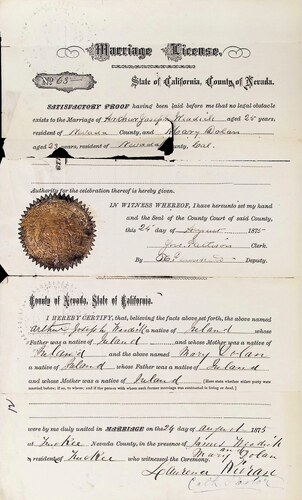 Marriage License.
No 65
State of California, County of Nevada.
SATISFACTORY PROOF having been laid before me that no legal obstacle
exists to the Marriage of Arthur Joseph aged 25 years,
resident of Nevada County, and Mary Dolan
aged 23 years, resident of Nevada County, Cal.
Authority for the celebration thereof is hereby given.
IN WITNESS WHEREOF, I have hereunto set my hand
and the Seal of the County Court of said County,
this 24 day of August 1875
Clerk.
By Deputy.
County of Nevada, State of California.
I HEREBY CERTIFY, that, believing the facts above set forth, the above named
Arthur Joseph a native of Ireland whose
Father was a native of Ireland and whose Mother was a native of
Ireland and the above named Mary Dolan
a native of Ireland whose Father was a native of Ireland
and whose Mother was a native of Ireland
were by me duly united in MARRIAGE on the 24 day of August 1875
at Truckee Nevada County, in the presence of James
an Mary Dolan
resident of Truckee who witnessed the Ceremony.
Lawrence Kieran
Cath Pastor